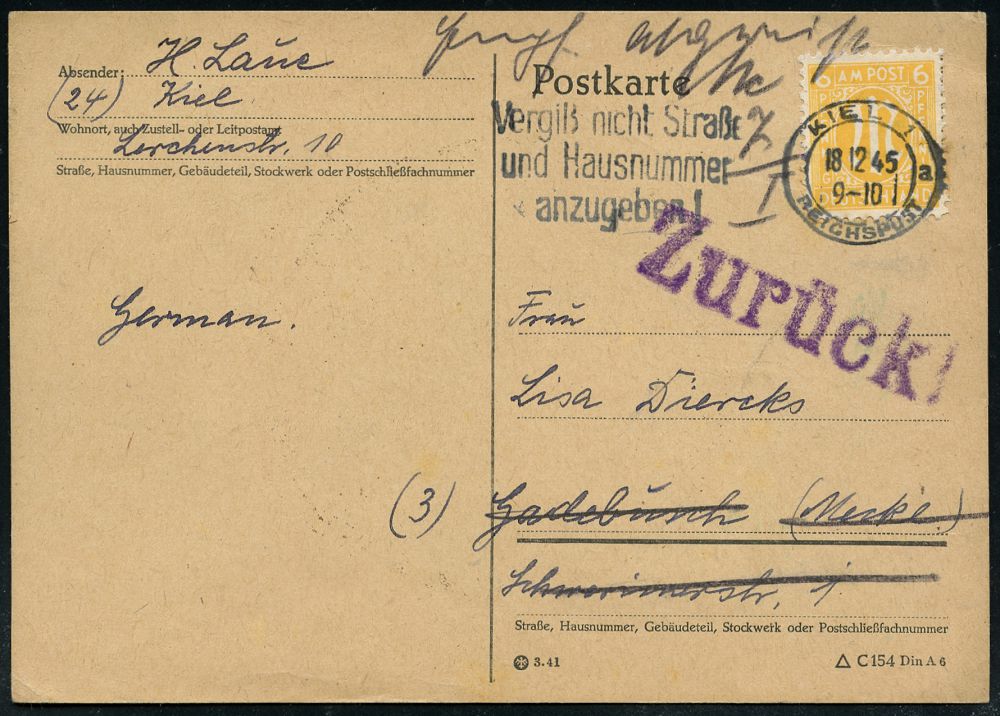 Absender: H. Laue
(24) Kiel
Wohnort, auch Zustell- oder Leitpostamt
Lerchenstr. 10
Straße, Hausnummer, Gebäudeteil, Stockwerk oder Postschließfachnummer
German.
Postkarte
Vergiß nicht Straße
und Hausnummer
anzugeben!
Z
I
6 AM POST 6
KIEL 1
18.12.45
9-10
a
REICHSPOST
Zurück!
Frau
Lisa Diercks
(3) Gadebusch (Meckl.)
Schwerinerstr. 1
Straße, Hausnummer, Gebäudeteil, Stockwerk oder Postschließfachnummer
3.41
C 154 Din A 6